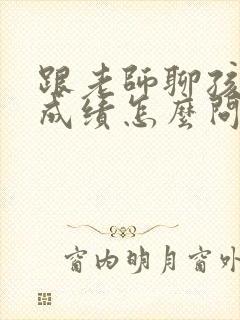 跟老師聊孩
成績怎麼問
窗内明月窗外